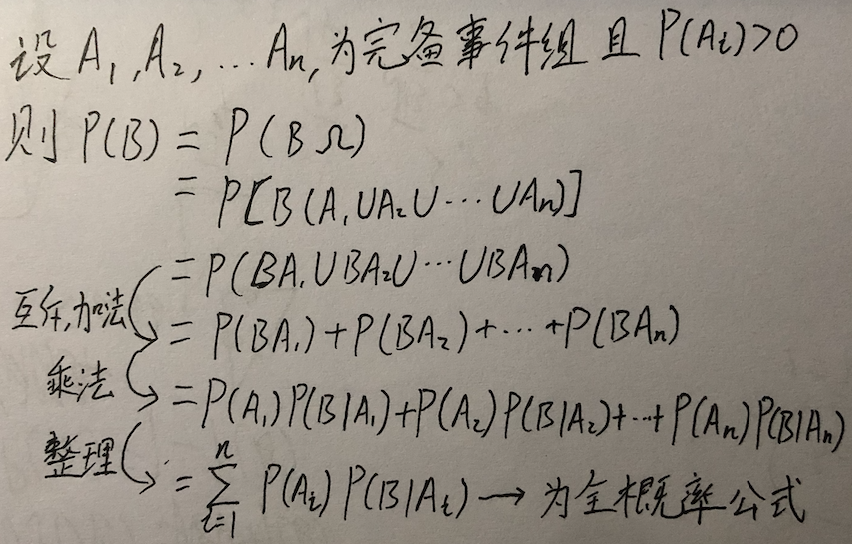 设 A₁, A₂, … Aₙ, 为完备事件组 且 P(Aᵢ)>0
则 P(B) = P(BΩ)
= P[B(A₁∪A₂∪⋯∪Aₙ)]
= P(BA₁∪BA₂∪⋯∪BAₙ)
互斥,加法 = P(BA₁)+P(BA₂)+⋯+P(BAₙ)
乘法 = P(A₁)P(B|A₁)+P(A₂)P(B|A₂)+⋯+P(Aₙ)P(B|Aₙ)
整理 = ∑ⁿᵢ₌₁ P(Aᵢ)P(B|Aᵢ) → 为全概率公式